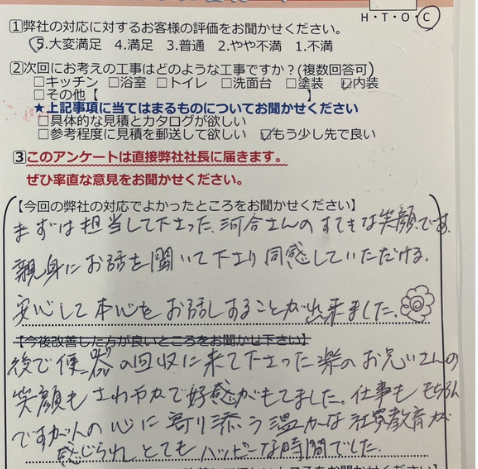 H・T・O・C
①弊社の対応に対するお客様の評価をお聞かせください。
5.大変満足 4.満足 3.普通 2.やや不満 1.不満
②次回にお考えの工事はどのような工事ですか?(複数回答可)
□キッチン □浴室 □トイレ □洗面台 □塗装 ☑内装
□その他【 】
★上記事項に当てはまるものについてお聞かせください
□具体的な見積とカタログが欲しい
□参考程度に見積を郵送して欲しい ☑もう少し先で良い
③このアンケートは直接弊社社長に届きます。
ぜひ率直な意見をお聞かせください。
【今回の弊社の対応でよかったところをお聞かせください】
まずは担当して下さった河合さんのすてきな笑顔です。
親身にお話を聞いて下さり同感していただける。
安心して本心をお話しすることが出来ました。
【今後改善した方が良いところをお聞かせ下さい】
後で便器の回収に来て下さった業のお兄いさんの
笑顔もさわやかで好感がもてました。仕事ももちろん
ですが人の心に寄り添う温かな社寮教育が
感じられとてもハッピーな時間でした。